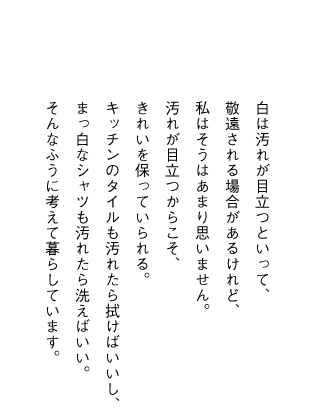 白は汚れが目立つといって、
敬遠される場合があるけれど、
私はそうはあまり思いません。
汚れが目立つからこそ、
きれいを保っていられる。
キッチンのタイルも汚れたら拭けばいいし、
まっ白なシャツも汚れたら洗えばいい。
そんなふうに考えて暮らしています。